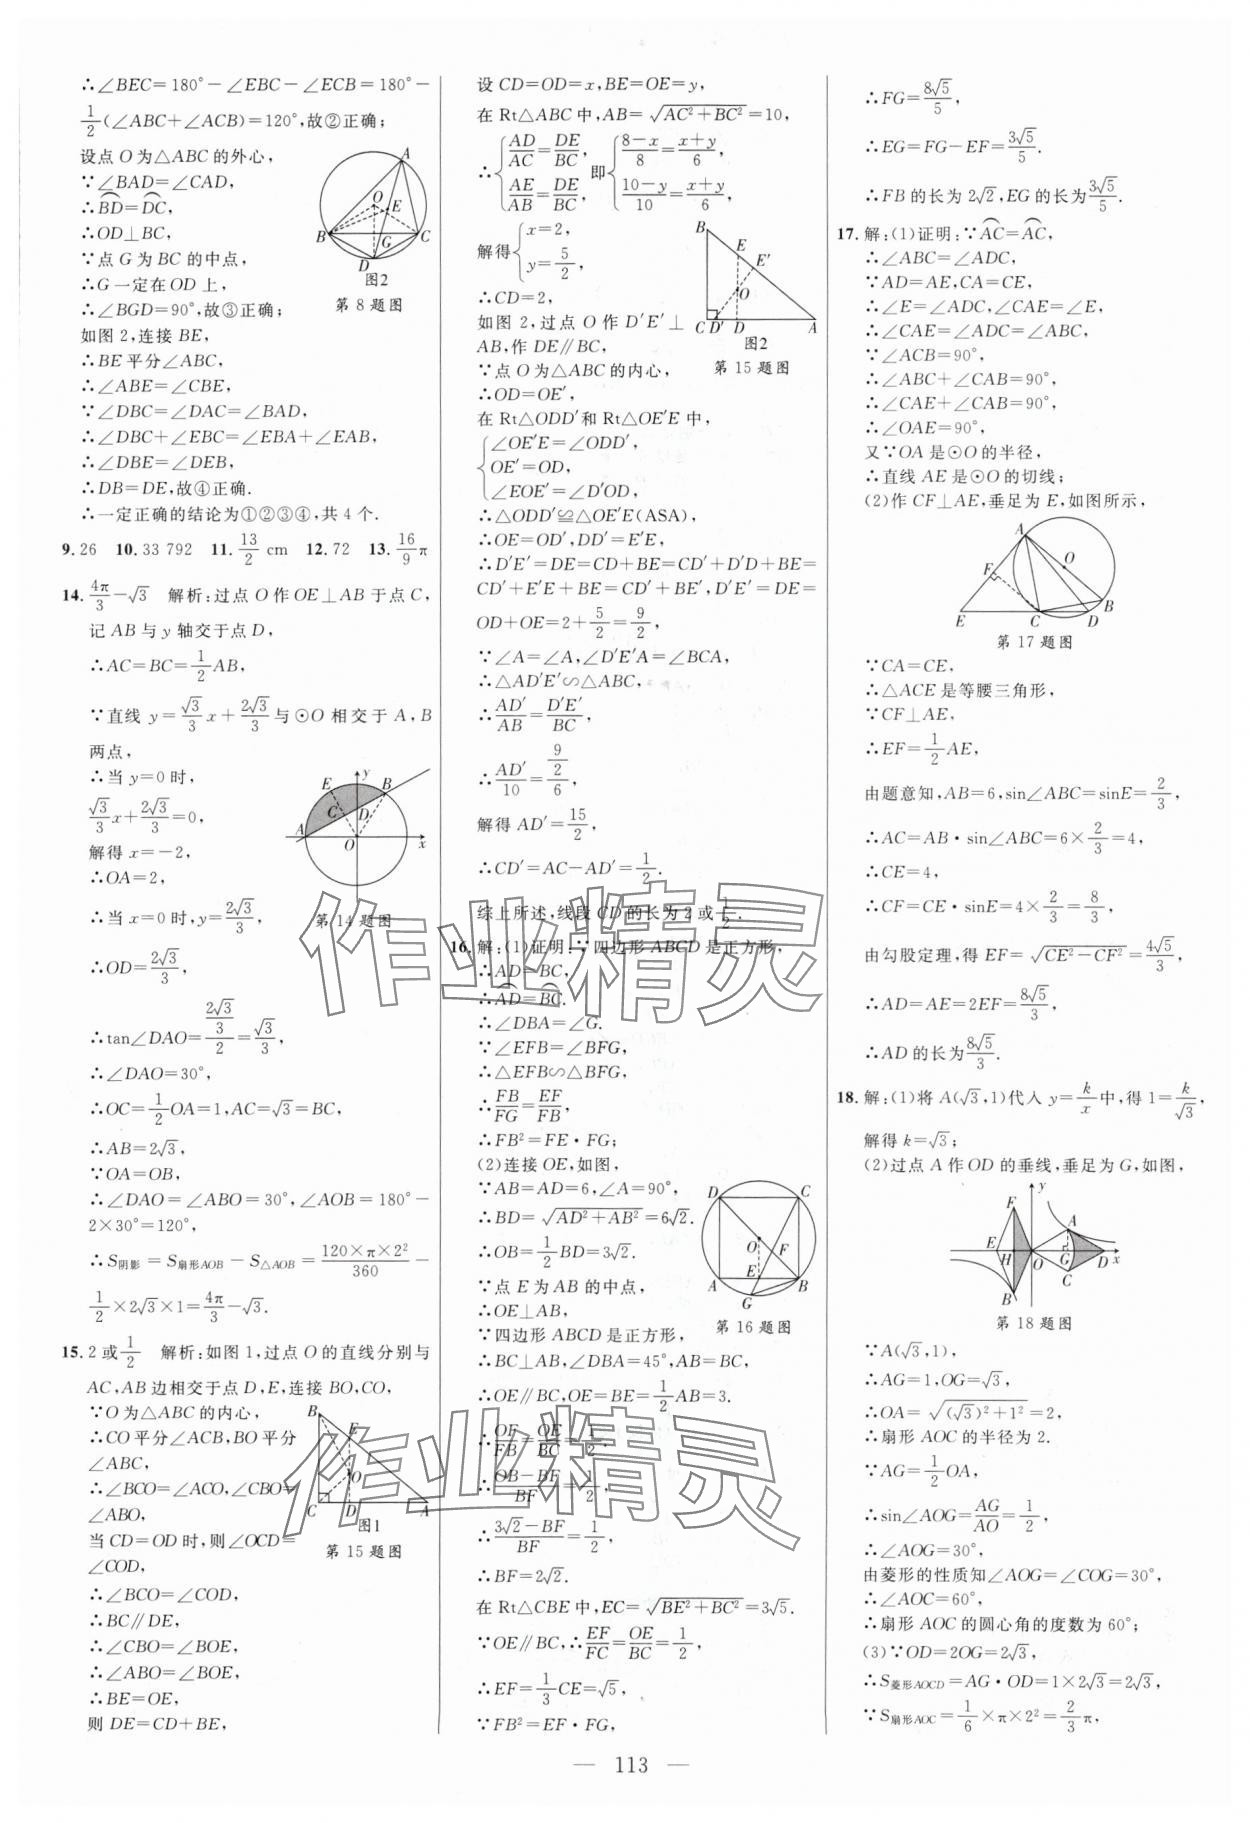 ∴∠BEC=180°-∠EBC-∠ECB=180°-
1/2(∠ABC+∠ACB)=120°,故②正确;
设点 O 为△ABC 的外心,
∵∠BAD=∠CAD,
∴BD⌒=DC⌒,
∴OD⊥BC,
∵点 G 为 BC 的中点,
∴G 一定在 OD 上,
∴∠BGD=90°,故③正确;
如图 2,连接 BE,
∴BE 平分∠ABC,
∴∠ABE=∠CBE,
∵∠DBC=∠DAC=∠BAD,
∴∠DBC+∠EBC=∠EBA+∠EAB,
∴∠DBE=∠DEB,
∴DB=DE,故④正确.
∴一定正确的结论为①②③④,共 4 个.
A
O
E
B
G
C
D
图2
第 8 题图
9. 26 10. 33 792 11. 13/2 cm 12. 72 13. 16/9 π
14. 4π/3-√3 解析:过点 O 作 OE⊥AB 于点 C,
记 AB 与 y 轴交于点 D,
∴AC=BC=1/2 AB,
∵直线 y=√3/3 x+2√3/3 与⊙O 相交于 A,B
两点,
∴当 y=0 时,
√3/3 x+2√3/3=0,
解得 x=-2,
∴OA=2,
∴当 x=0 时,y=2√3/3,
∴OD=2√3/3,
∴tan∠DAO=(2√3/3)/2=√3/3,
∴∠DAO=30°,
∴OC=1/2 OA=1,AC=√3=BC,
∴AB=2√3,
∵OA=OB,
∴∠DAO=∠ABO=30°,∠AOB=180°-
2×30°=120°,
∴S阴影=S扇形AOB-S△AOB=120×π×2²/360-
1/2×2√3×1=4π/3-√3.
E y B
C D
A O x
第 14 题图
15. 2 或 1/2 解析:如图 1,过点 O 的直线分别与
AC,AB 边相交于点 D,E,连接 BO,CO,
∵O 为△ABC 的内心,
∴CO 平分∠ACB,BO 平分
∠ABC,
∴∠BCO=∠ACO,∠CBO=
∠ABO,
当 CD=OD 时,则∠OCD=
∠COD,
∴∠BCO=∠COD,
∴BC∥DE,
∴∠CBO=∠BOE,
∴∠ABO=∠BOE,
∴BE=OE,
则 DE=CD+BE,
B
E
O
C D A
图1
第 15 题图
设 CD=OD=x,BE=OE=y,
在 Rt△ABC 中,AB=√(AC²+BC²)=10,
∴{AD/AC=DE/BC, AE/AB=DE/BC, 即{(8-x)/8=(x+y)/6, (10-y)/10=(x+y)/6,
解得{x=2, y=5/2,
∴CD=2,
如图 2,过点 O 作 D′E′⊥
AB,作 DE∥BC,
∵点 O 为△ABC 的内心,
∴OD=OE′,
在 Rt△ODD′和 Rt△OE′E 中,
{∠OE′E=∠ODD′,
OE′=OD,
∠EOE′=∠D′OD,
∴△ODD′≌△OE′E(ASA),
∴OE=OD′,DD′=E′E,
∴D′E′=DE=CD+BE=CD′+D′D+BE=
CD′+E′E+BE=CD′+BE′,D′E′=DE=
OD+OE=2+5/2=9/2,
∵∠A=∠A,∠D′E′A=∠BCA,
∴△AD′E′∽△ABC,
∴AD′/AB=D′E′/BC,
∴AD′/10=(9/2)/6,
解得 AD′=15/2,
∴CD′=AC-AD′=1/2.
综上所述,线段 CD 的长为 2 或 1/2.
B
E
E′
O
C D′ D A
图2
第 15 题图
16. 解:(1)证明:∵四边形 ABCD 是正方形,
∴AD=BC,
∴AD⌒=BC⌒.
∴∠DBA=∠G.
∵∠EFB=∠BFG,
∴△EFB∽△BFG,
∴FB/FG=EF/FB,
∴FB²=FE·FG;
(2)连接 OE,如图,
∵AB=AD=6,∠A=90°,
∴BD=√(AD²+AB²)=6√2.
∴OB=1/2 BD=3√2.
∵点 E 为 AB 的中点,
∴OE⊥AB,
∵四边形 ABCD 是正方形,
∴BC⊥AB,∠DBA=45°,AB=BC,
∴OE∥BC,OE=BE=1/2 AB=3.
∴OF/FB=OE/BC=1/2,
∴(OB-BF)/BF=1/2,
∴(3√2-BF)/BF=1/2,
∴BF=2√2.
在 Rt△CBE 中,EC=√(BE²+BC²)=3√5.
∵OE∥BC,∴EF/FC=OE/BC=1/2,
∴EF=1/3 CE=√5,
∵FB²=EF·FG,
D C
O F
A E B
G
第 16 题图
∴FG=8√5/5,
∴EG=FG-EF=3√5/5.
∴FB 的长为 2√2,EG 的长为 3√5/5.
17. 解:(1)证明:∵AC⌒=AC⌒,
∴∠ABC=∠ADC,
∵AD=AE,CA=CE,
∴∠E=∠ADC,∠CAE=∠E,
∴∠CAE=∠ADC=∠ABC,
∵∠ACB=90°,
∴∠ABC+∠CAB=90°,
∴∠CAE+∠CAB=90°,
∴∠OAE=90°,
又∵OA 是⊙O 的半径,
∴直线 AE 是⊙O 的切线;
(2)作 CF⊥AE,垂足为 E,如图所示,
A
O
F
B
E C D
第 17 题图
∵CA=CE,
∴△ACE 是等腰三角形,
∵CF⊥AE,
∴EF=1/2 AE,
由题意知,AB=6,sin∠ABC=sinE=2/3,
∴AC=AB·sin∠ABC=6×2/3=4,
∴CE=4,
∴CF=CE·sinE=4×2/3=8/3,
由勾股定理,得 EF=√(CE²-CF²)=4√5/3,
∴AD=AE=2EF=8√5/3,
∴AD 的长为 8√5/3.
18. 解:(1)将 A(√3,1)代入 y=k/x 中,得 1=k/√3,
解得 k=√3;
(2)过点 A 作 OD 的垂线,垂足为 G,如图,
F y
A
E H O G D x
B C
第 18 题图
∵A(√3,1),
∴AG=1,OG=√3,
∴OA=√((√3)²+1²)=2,
∴扇形 AOC 的半径为 2.
∵AG=1/2 OA,
∴sin∠AOG=AG/AO=1/2,
∴∠AOG=30°,
由菱形的性质知∠AOG=∠COG=30°,
∴∠AOC=60°,
∴扇形 AOC 的圆心角的度数为 60°;
(3)∵OD=2OG=2√3,
∴S菱形AOCD=AG·OD=1×2√3=2√3,
∵S扇形AOC=1/6×π×2²=2/3 π,
— 113 —
作业精灵
作业精灵